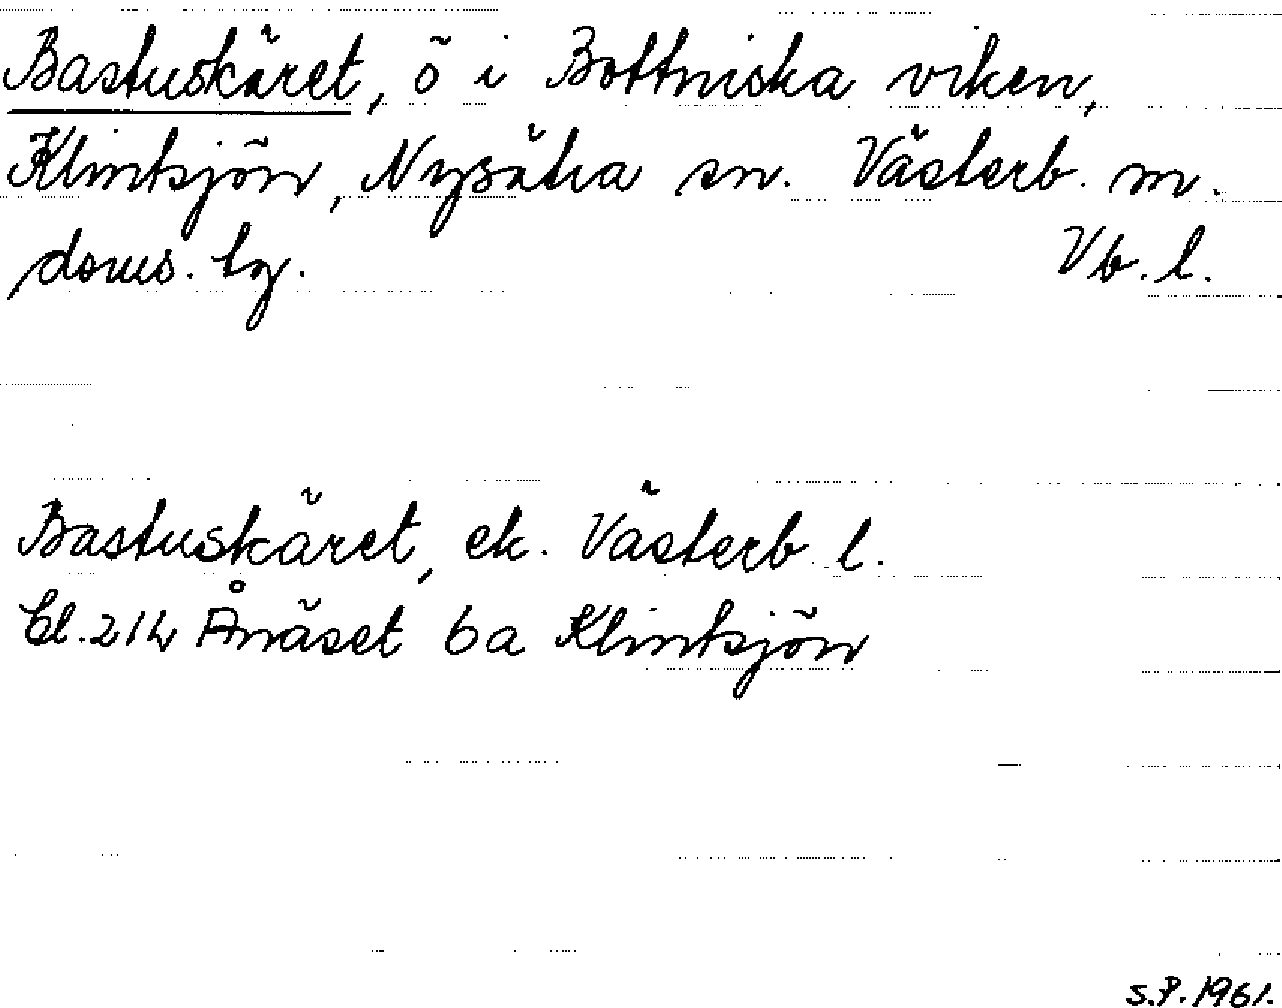 Bastuskäret, ö i Bottniska viken,
Klintsjön, Nysätra sn. Västerb. m.
doms. tg. Vb. l.
Bastuskäret, ek. Västerb. l.
bl. 21L Ånäset 6a Klintsjön
S.P. 1961.